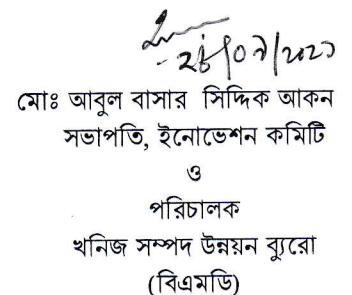 মোঃ আবুল বাসার সিদ্দিক আকন
সভাপতি, ইনোভেশন কমিটি
ও
পরিচালক
খনিজ সম্পদ উন্নয়ন ব্যুরো
(বিএমডি)